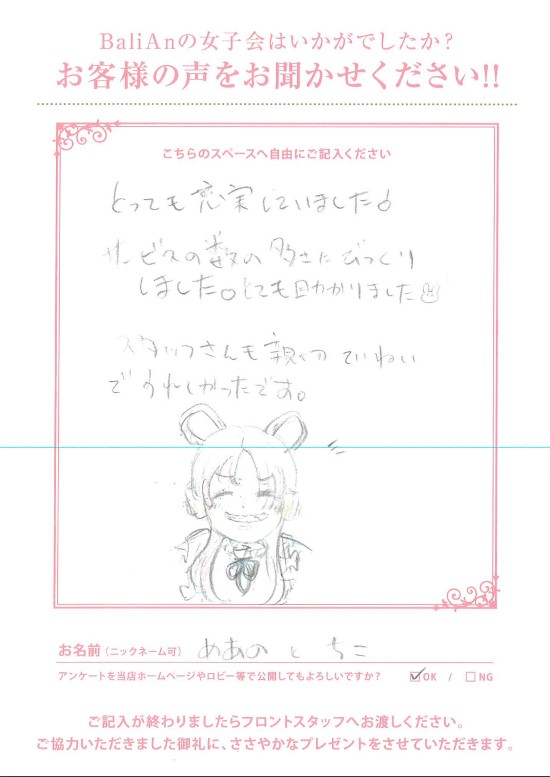 BaliAnの女子会はいかがでしたか?
お客様の声をお聞かせください!!
こちらのスペースへ自由にご記入ください
とっても充実していました
サービスの数の多さにびっくり
しました。とても助かりました
スタッフさんも親切ていねい
でうれしかったです。
お名前(ニックネーム可) めあのとちこ
アンケートを当店ホームページやロビー等で公開してもよろしいですか? ☑OK / □NG
ご記入が終わりましたらフロントスタッフへお渡しください。
ご協力いただきました御礼に、ささやかなプレゼントをさせていただきます。